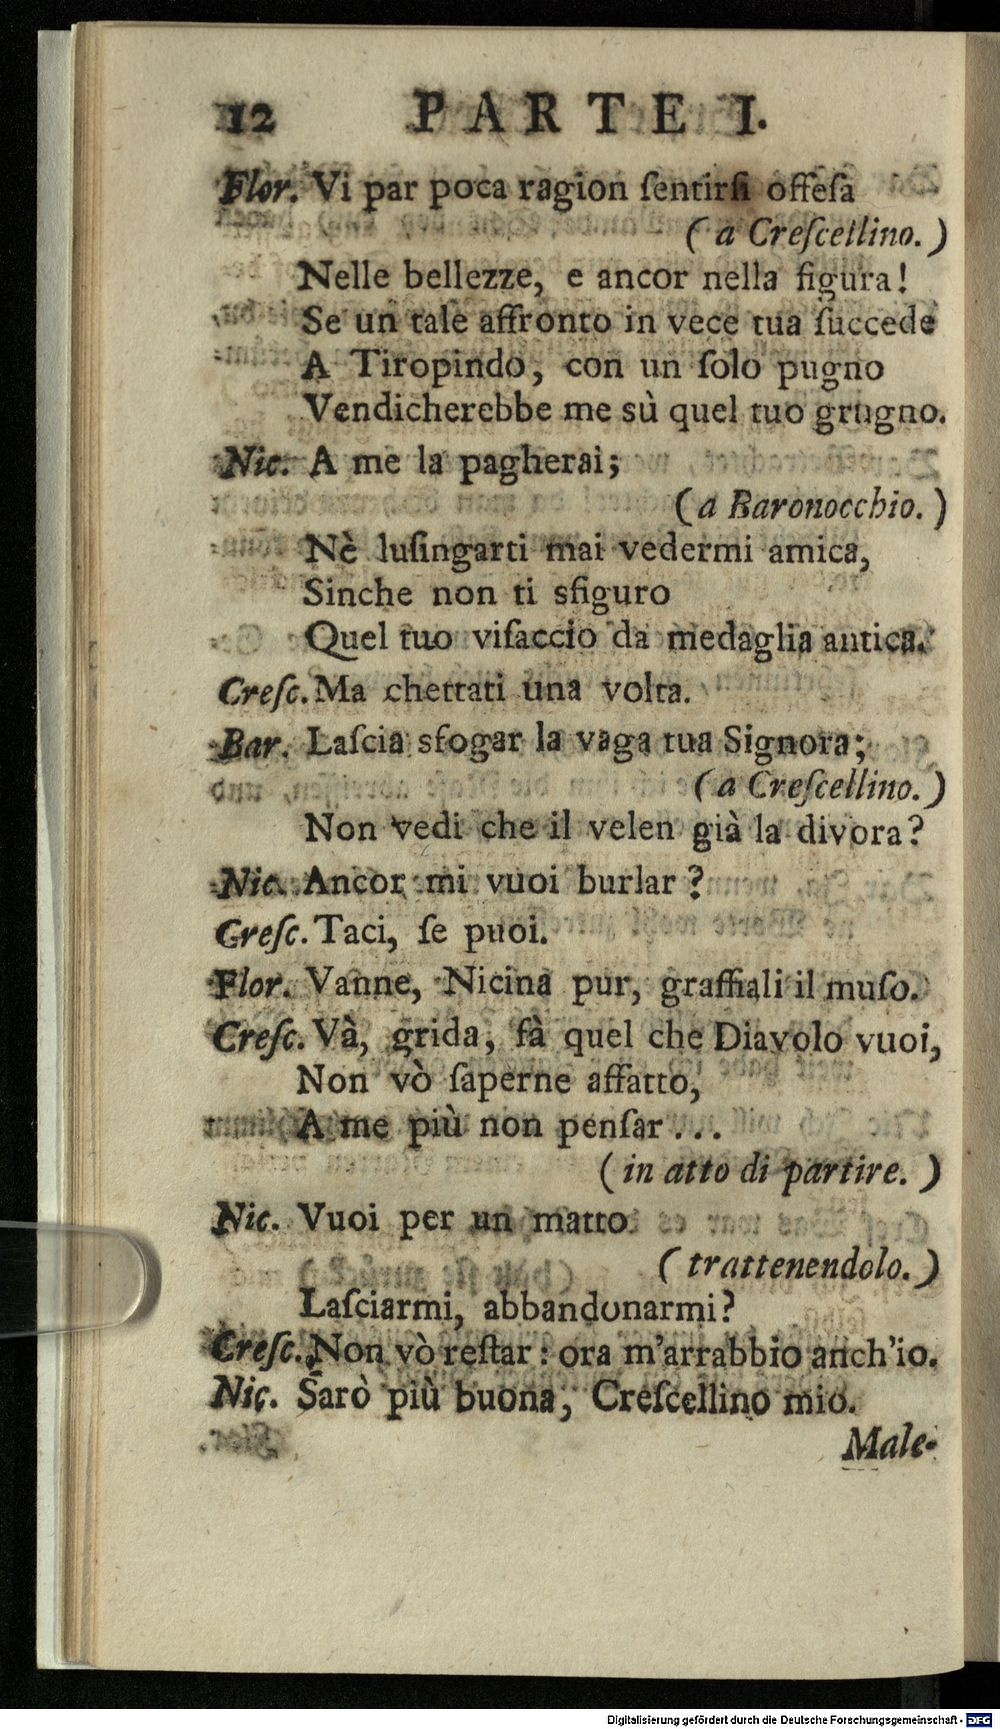 12 PARTE I.
Flor. Vi par poca ragion ſentirſi offeſa
( a Creſcellino. )
Nelle bellezze, e ancor nella figura!
Se un tale affronto in vece tua ſuccede
A Tiropindo, con un ſolo pugno
Vendicherebbe me sù quel tuo grugno.
Nic. A me la pagherai;
( a Baronocchio. )
Nè luſingarti mai vedermi amica,
Sinche non ti sfiguro
Quel tuo viſaccio da medaglia antica.
Creſc. Ma chettati una volta.
Bar. Laſcia sfogar la vaga tua Signora;
( a Creſcellino. )
Non vedi che il velen già la divora?
Nic. Ancor mi vuoi burlar?
Creſc. Taci, ſe puoi.
Flor. Vanne, Nicina pur, graffiali il muſo.
Creſc. Và, grida, fà quel che Diavolo vuoi,
Non vò ſaperne affatto,
A me più non penſar...
( in atto di partire. )
Nic. Vuoi per un matto
( trattenendolo. )
Laſciarmi, abbandonarmi?
Creſc. Non vò reſtar: ora m'arrabbio anch'io.
Nic. Sarò più buona, Creſcellino mio.
Male-
Digitalisierung gefördert durch die Deutsche Forschungsgemeinschaft - DFG